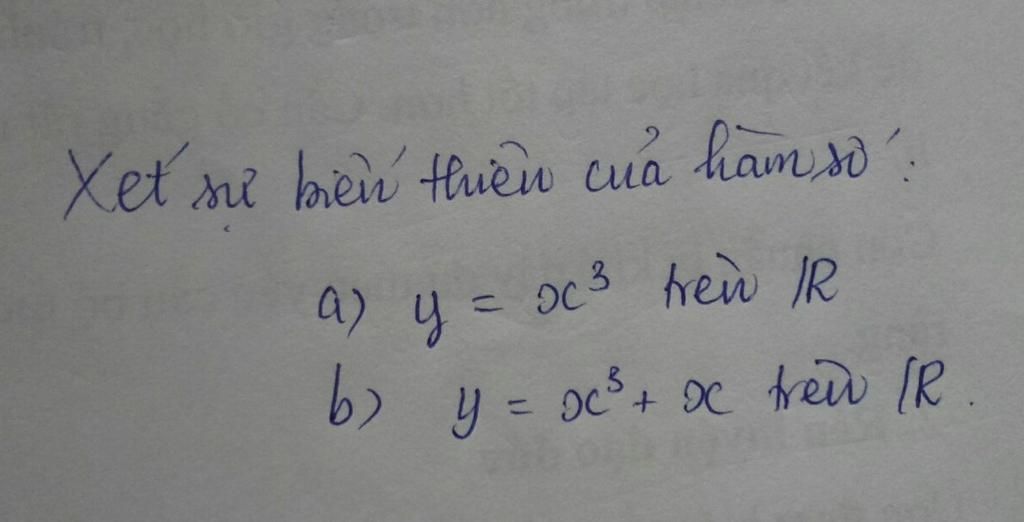 Xét sự biến thiên của hàm số :
a) y = x³ trên R
b) y = x³ + x trên R.